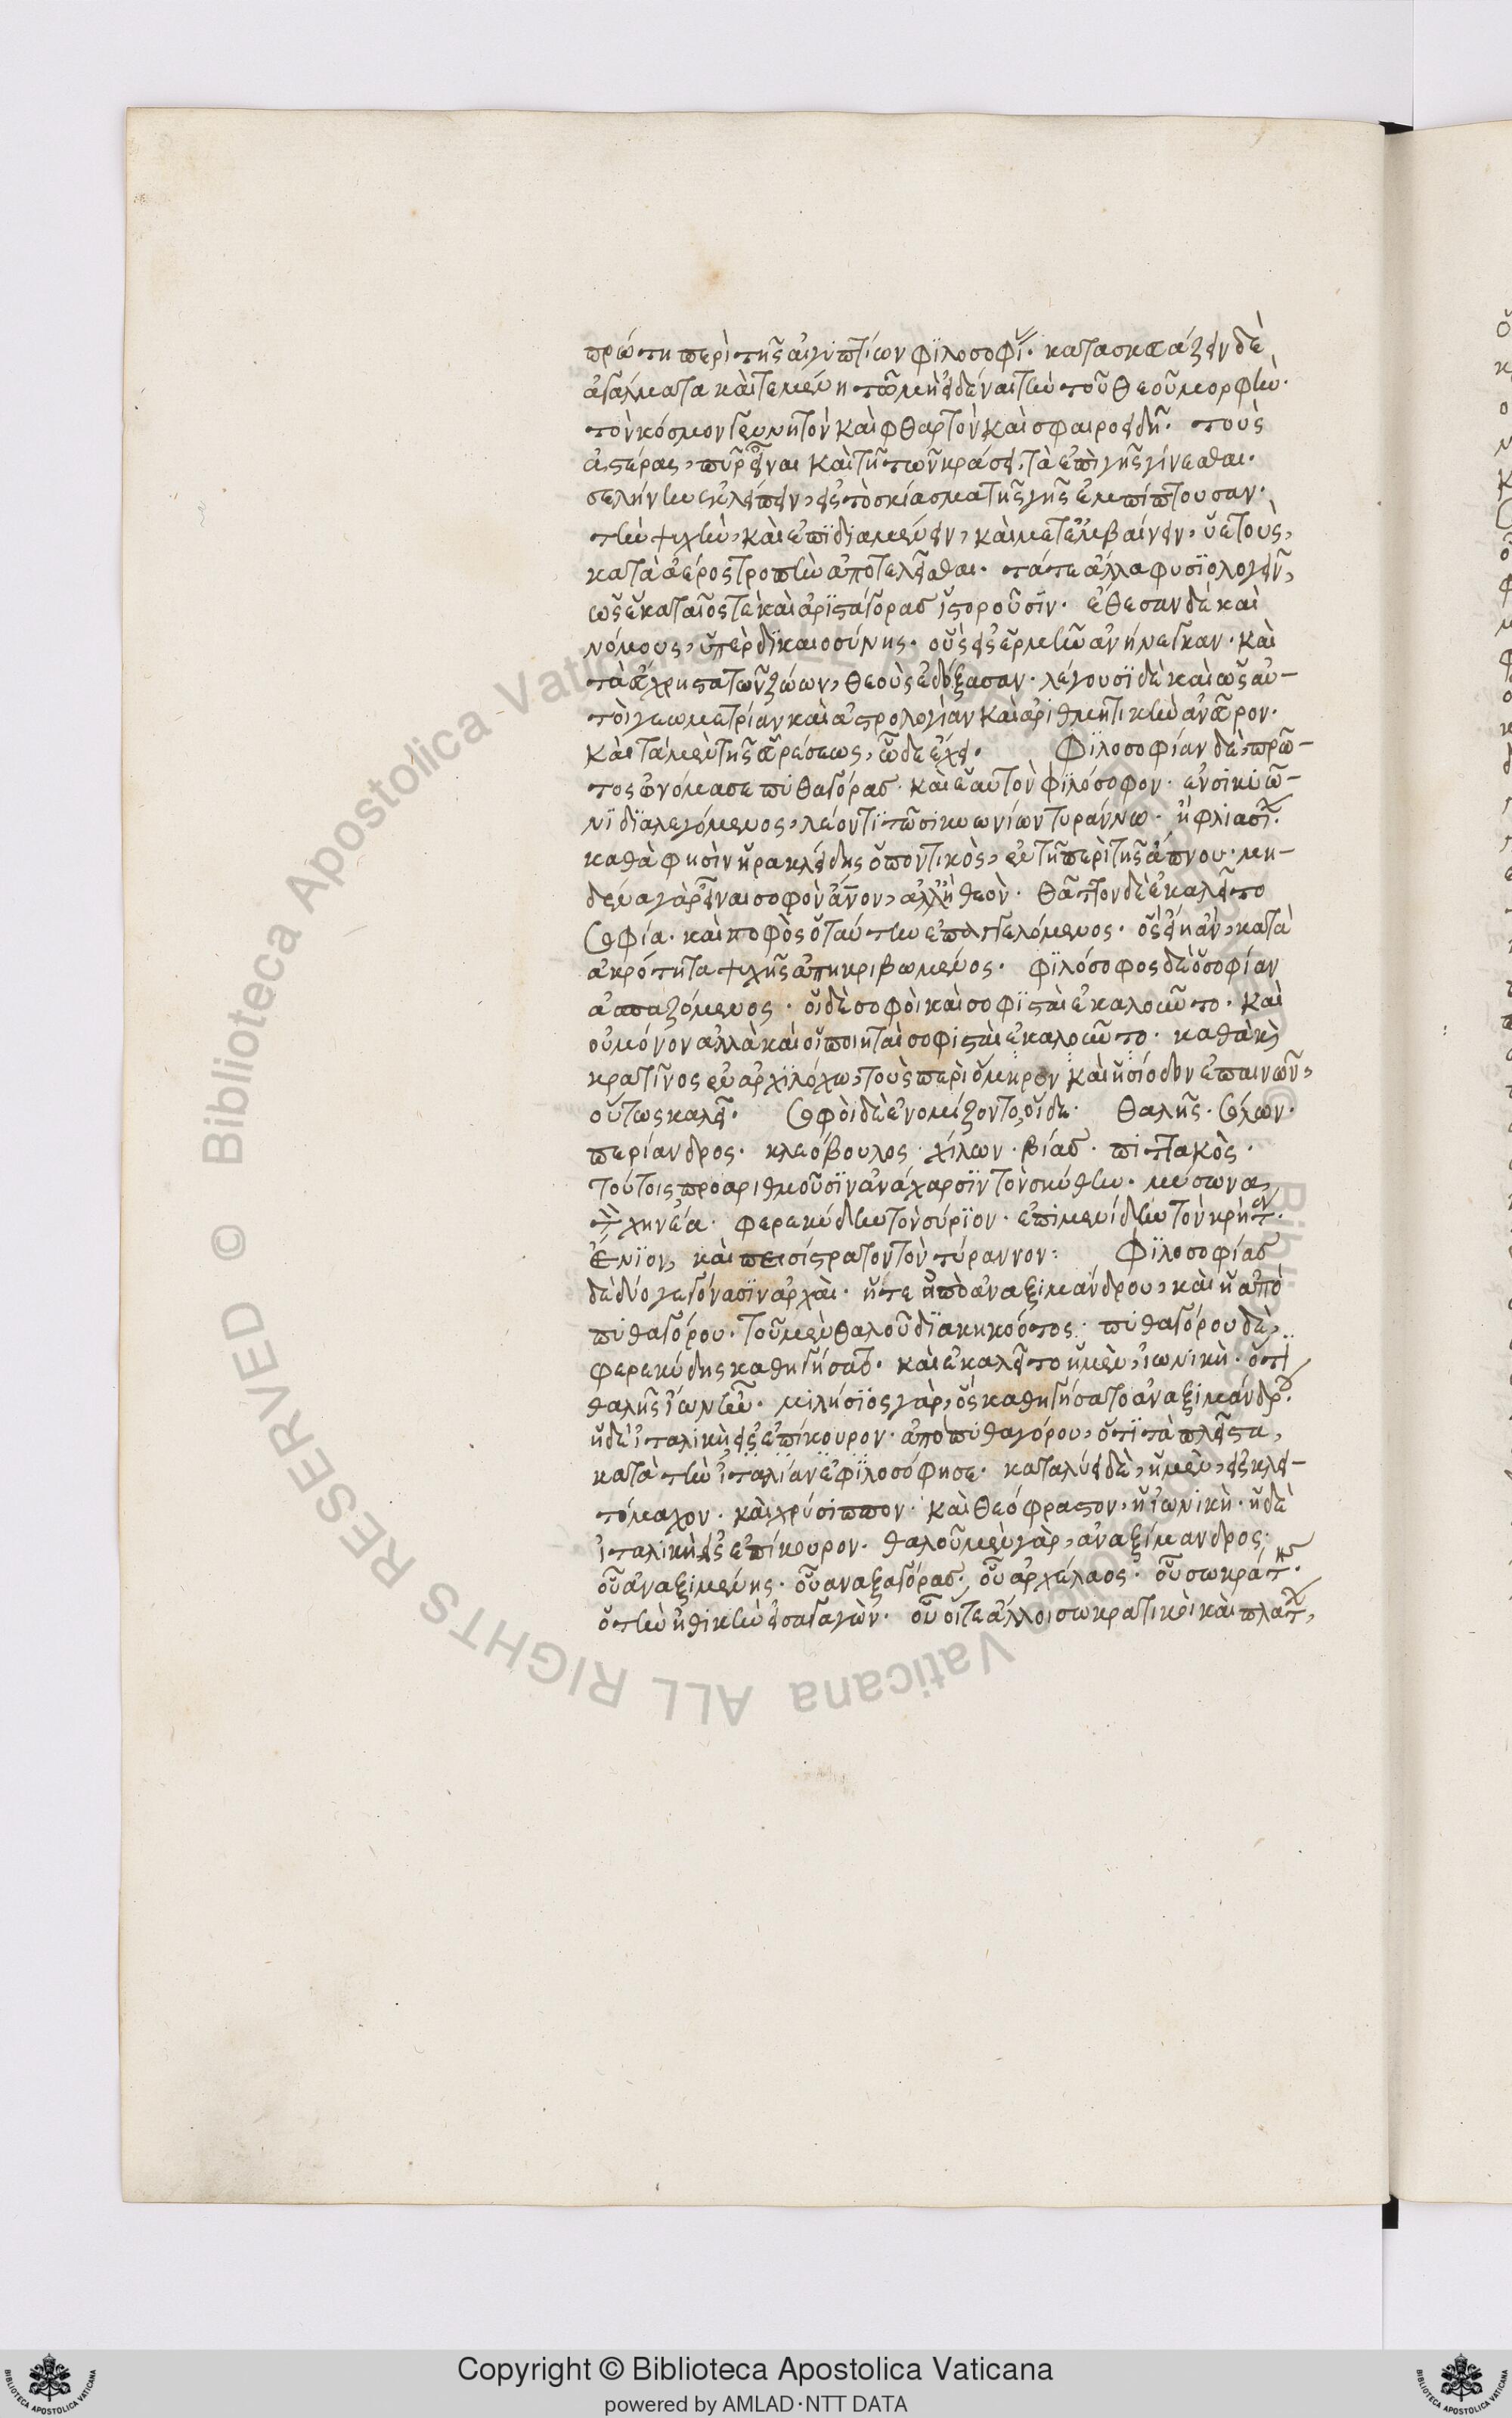 πρώτη περὶ τῆς αἰγϋπτίων φϊλοσοφϊ. κατασκευάζειν δὲ
ἀγάλματα καὶ τεμένη τῶ μὴ εἰδέναι τὴν τοῦ θεοῦ μορφὴν.
τὸν κόσμον γεννητὸν καὶ φθαρτὸν καὶ σφαιροειδῆ. τοὺς
ἀστέρας, πῦρ εἶναι καὶ τῆ τῶν κράσει, τὰ ἐπὶ γῆς γίνεσθαι.
σελήνην ἐκλείπειν, εἰς τὸ σκίασμα τῆς γῆς ἐμπίπτουσαν.
τὴν ψυχὴν, καὶ ἐπϊδιαμένειν, καὶ μετεμβαίνειν, ὑετοὺς,
κατὰ ἀέρος τροπὴν ἀποτελεῖσθαι. τά τε ἄλλα φυσϊολογεῖν,
ὡς ἑκαταῖος τὲ καὶ ἀρϊσταγόρας ἱστοροῦσϊν. ἔθεσαν δὲ καὶ
νόμους, ὑπὲρ δϊκαιοσύνης. οὓς εἰς ἑρμῆν ἀνήνεγκαν. καὶ
τὰ εὔχρηστα τῶν ζώων, θεοὺς ἐδόξασαν. λέγουσϊ δὲ καὶ ὡς αὐ-
τοὶ γεωμετρίαν καὶ ἀστρολογίαν καὶ ἀριθμητικὴν ἀνεῦρον.
καὶ τὰ μὲν τῆς εὑρέσεως, ὧδε ἔχει. Φϊλοσοφίαν δὲ, πρῶ-
τος ὠνόμασε πυθαγόρας. καὶ ἑαυτὸν φϊλόσοφον. ἐν σικυῶ-
νϊ δϊαλεγόμενος, λέοντϊ τῶ σικυωνίων τυράννω. ἢ φλιασϊ.
καθὰ φησὶν ἡρακλείδης ὁ ποντικὸς, ἐν τῆ περὶ τῆς ἄπνου. μη-
δένα γὰρ εἶναι σοφὸν ἄνον, ἀλλ' ἢ θεὸν. θᾶττον δὲ ἐκαλεῖτο
Σοφία. καὶ σοφὸς ὁ ταύτην ἐπαγγελόμενος. ὃς εἴη ἂν, κατὰ
ἀκρότητα ψυχῆς ἀπηκριβωμένος. φϊλόσοφος δὲ ὁ σοφίαν
ἀσπαζόμενος. οἱ δὲ σοφοὶ καὶ σοφϊσταὶ ἐκαλοῦντο. καὶ
οὐ μόνον ἀλλὰ καὶ οἱ ποιηταὶ σοφισταὶ ἐκαλοῦντο. καθὰ καὶ
κρατῖνος ἐν ἀρχϊλόχω, τοὺς περὶ ὅμηρον καὶ ἡσίοδον ἐπαινῶν,
οὕτως καλεῖ. Σοφοὶ δὲ ἐνομίζοντο, οἵδε. Θαλῆς. Σόλων.
περίανδρος. κλεόβουλος. χίλων. βίας. πιττακὸς.
τούτοις προαριθμοῦσϊν ἀνάχαρσϊν τὸν σκύθην. μύσωνα,
τὸν χηνέα. φερεκύδην τὸν σύρϊον. ἐπιμενίδην τὸν κρῆτ.
ἔνϊοι, καὶ πεισίστρατον τὸν τύραννον: Φϊλοσοφίας
δὲ δύο γεγόνασϊν ἀρχαὶ. ἥ τε ἀπὸ ἀναξιμάνδρου, καὶ ἡ ἀπὸ
πυθαγόρου. τοῦ μὲν θαλοῦ δϊακηκοότος. πυθαγόρου δὲ,
φερεκύδης καθηγήσατ. καὶ ἐκαλεῖτο ἡ μὲν, ἰωνικὴ. ὅτι
θαλῆς ἴων ἦν. μιλήσϊος γὰρ, ὃς καθηγήσατο ἀναξιμάνδρου.
ἡ δὲ ἰταλικὴ εἰς ἐπίκουρον. ἀπὸ πυθαγόρου, ὅτϊ τὰ πλεῖστα,
κατὰ τὴν ἰταλίαν ἐφϊλοσόφησε. καταλύει δὲ, ἡ μὲν, εἰς κλει-
τόμαχον. καὶ χρύσιππον. καὶ θεόφραστον, ἡ ἰωνικὴ. ἡ δὲ
ἰταλικὴ εἰς ἐπίκουρον. θαλοῦ μὲν γὰρ, ἀναξίμανδρος.
οὗ ἀναξιμένης. οὗ ἀναξαγόρας. οὗ ἀρχέλαος. οὗ σωκράτης.
ὁ τὴν ἠθικὴν εἰσαγαγὼν. οὗ οἵ τε ἄλλοι σωκρατικοὶ καὶ πλάτων,
Copyright © Biblioteca Apostolica Vaticana
powered by AMLAD·NTT DATA
© Biblioteca Apostolica Vaticana ALL RIGHTS RESERVED